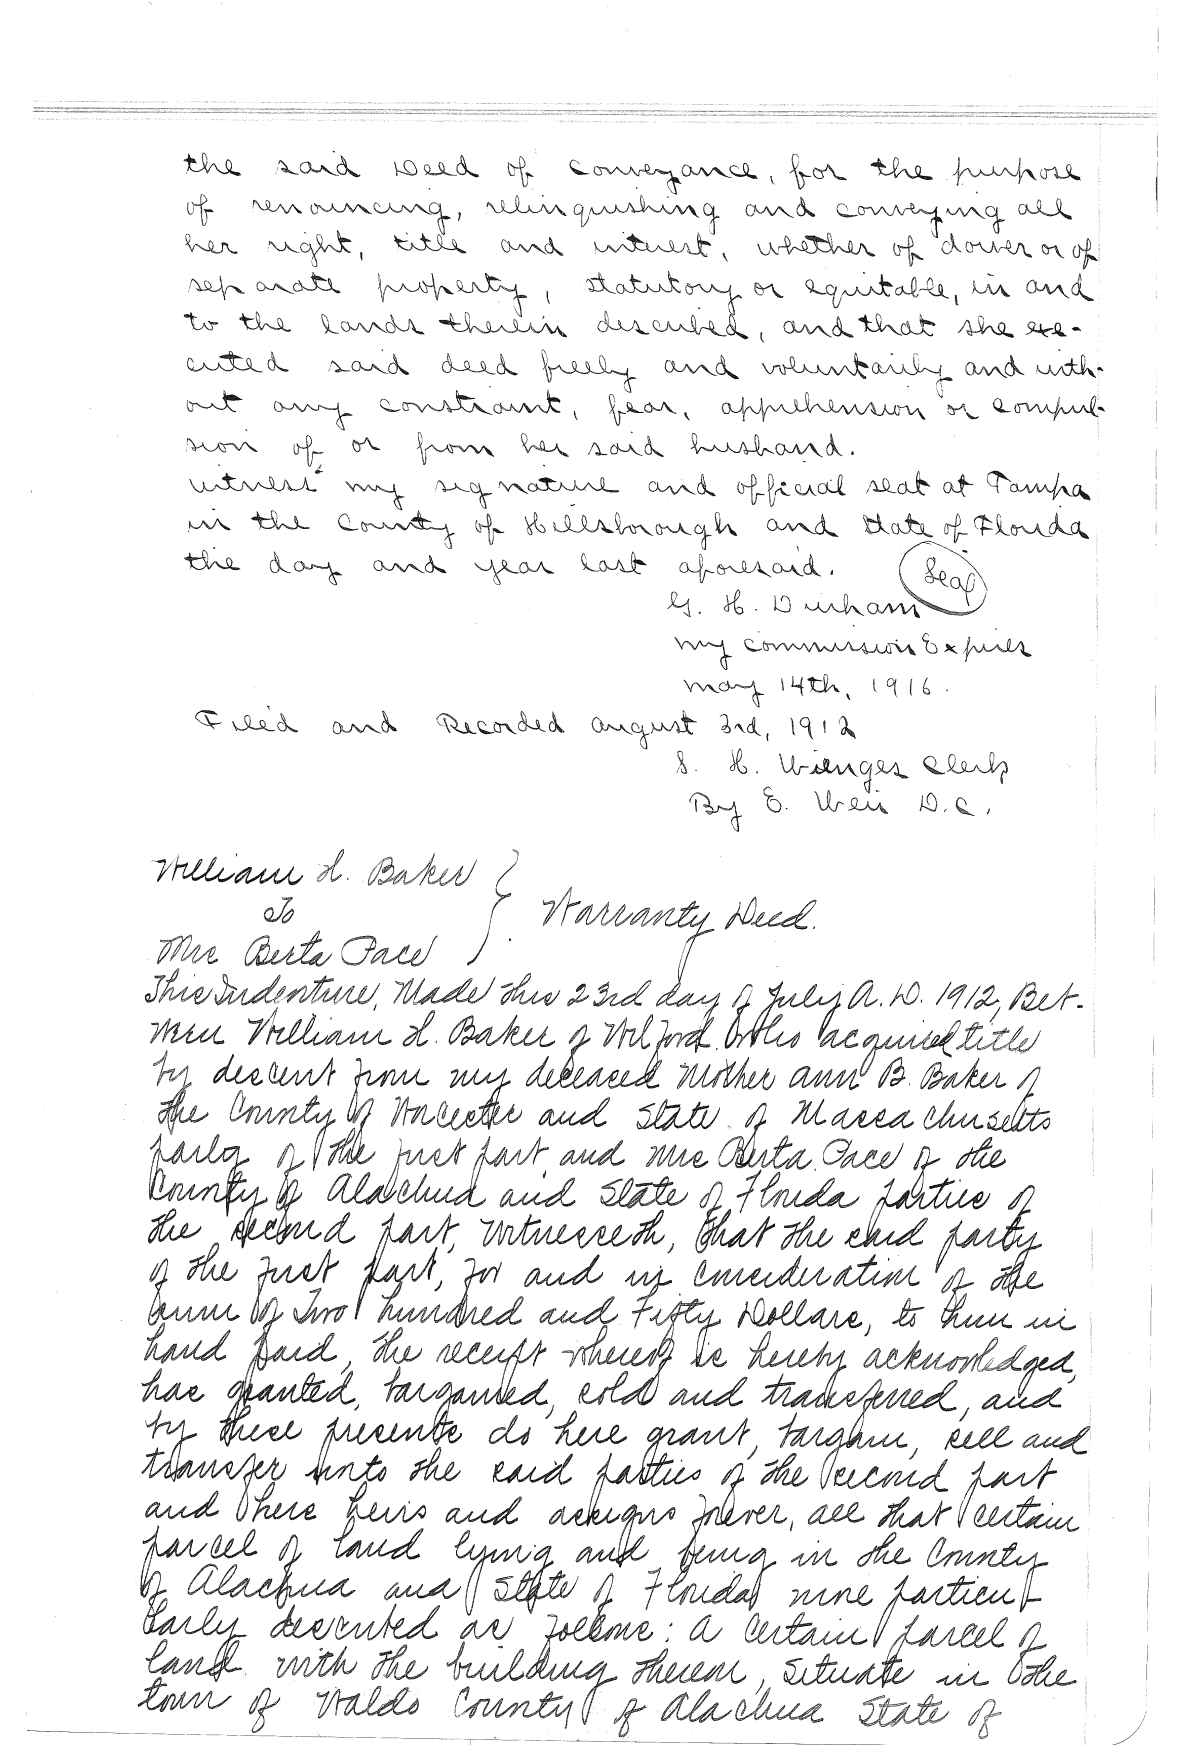 the said Deed of Conveyance, for the purpose
of renouncing, relinquishing and conveying all
her right, title and interest, whether of dower or of
separate property, statutory or equitable, in and
to the lands therein described, and that she exe-
cuted said deed freely and voluntarily and with-
out any constraint, fear, apprehension or compul-
sion of or from her said husband.
Witness my signature and official seal at Tampa
in the County of Hillsborough and State of Florida
the day and year last aforesaid. Seal
G. H. Durham
my commission Expires
may 14th, 1916.
Filed and Recorded August 3rd, 1912
S. H. Wienges Clerk
By E. Weir D.C.
William H. Baker
To Warranty Deed.
Mrs Berta Pace
This Indenture, Made this 23rd day of July A.D. 1912, Bet-
ween William H. Baker of Milford. Who acquired title
by descent from my deceased Mother Ann B. Baker of
the County of Worcester and State of Massachusetts
party of the first part and Mrs Berta Pace of the
County of Alachua and State of Florida parties of
the second part, Witnesseth, that the said party
of the first part, for and in consideration of the
sum of Two hundred and Fifty Dollars, to him in
hand paid, the receipt whereof is hereby acknowledged,
has granted, bargained, sold and transferred, and
by these presents do here grant, bargain, sell and
transfer unto the said parties of the second part
and there heirs and assigns forever, all that certain
parcel of land lying and being in the County
of Alachua and State of Florida more particu-
larly described as follows: A certain parcel of
land with the building thereon, situate in the
town of Waldo County of Alachua State of